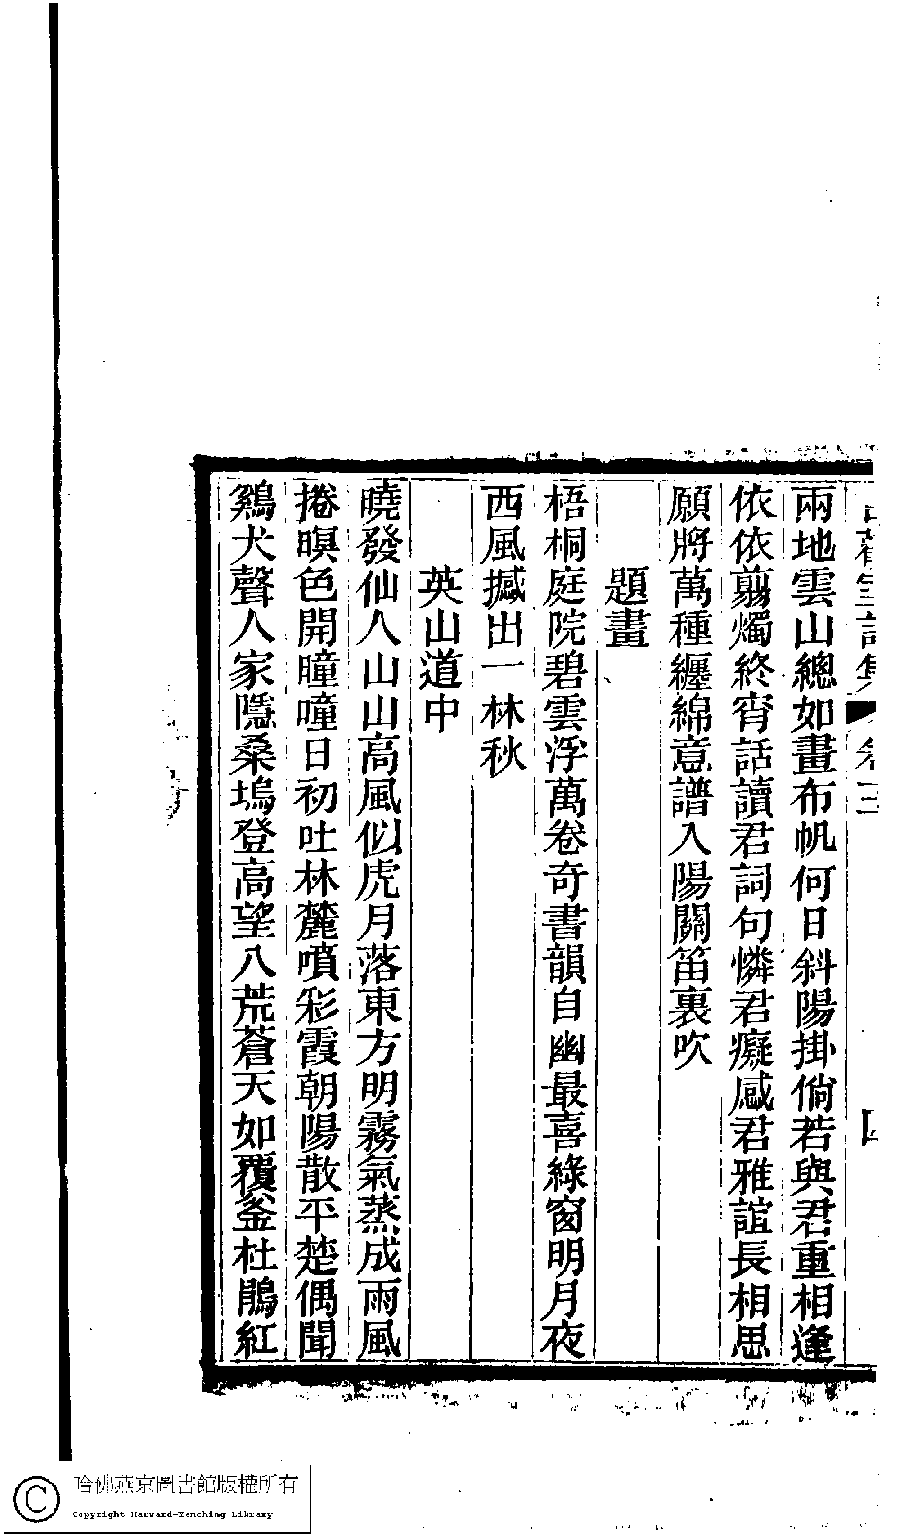 兩地雲山總如畫布帆何日斜陽掛倘若與君重相逢
依依翦燭終宵話讀君詞句憐君癡感君雅誼長相思
願將萬種纏綿意譜入陽關笛裏吹
題畫
梧桐庭院碧雲浮萬卷奇書韻自幽最喜綠窗明月夜
西風撼出一林秋
英山道中
曉發仙人山山高風似虎月落東方明霧氣蒸成雨風
捲暝色開曈曨日初吐林麓噴彩霞朝陽散平楚偶聞
鷄犬聲人家隱桑塢登高望八荒蒼天如覆釜杜鵑紅
哈佛燕京圖書館版權所有
Copyright Harvard-Yenching Library